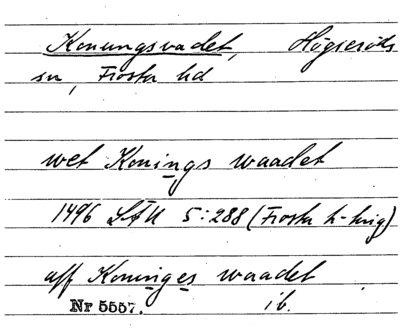 Konungsvadet, Högseröds
sn, Frosta hd
wet Konings waadet
1496 LÄU 5:288 (Frosta h-ting)
aff Koninges waadet
Nr 5557. ib.